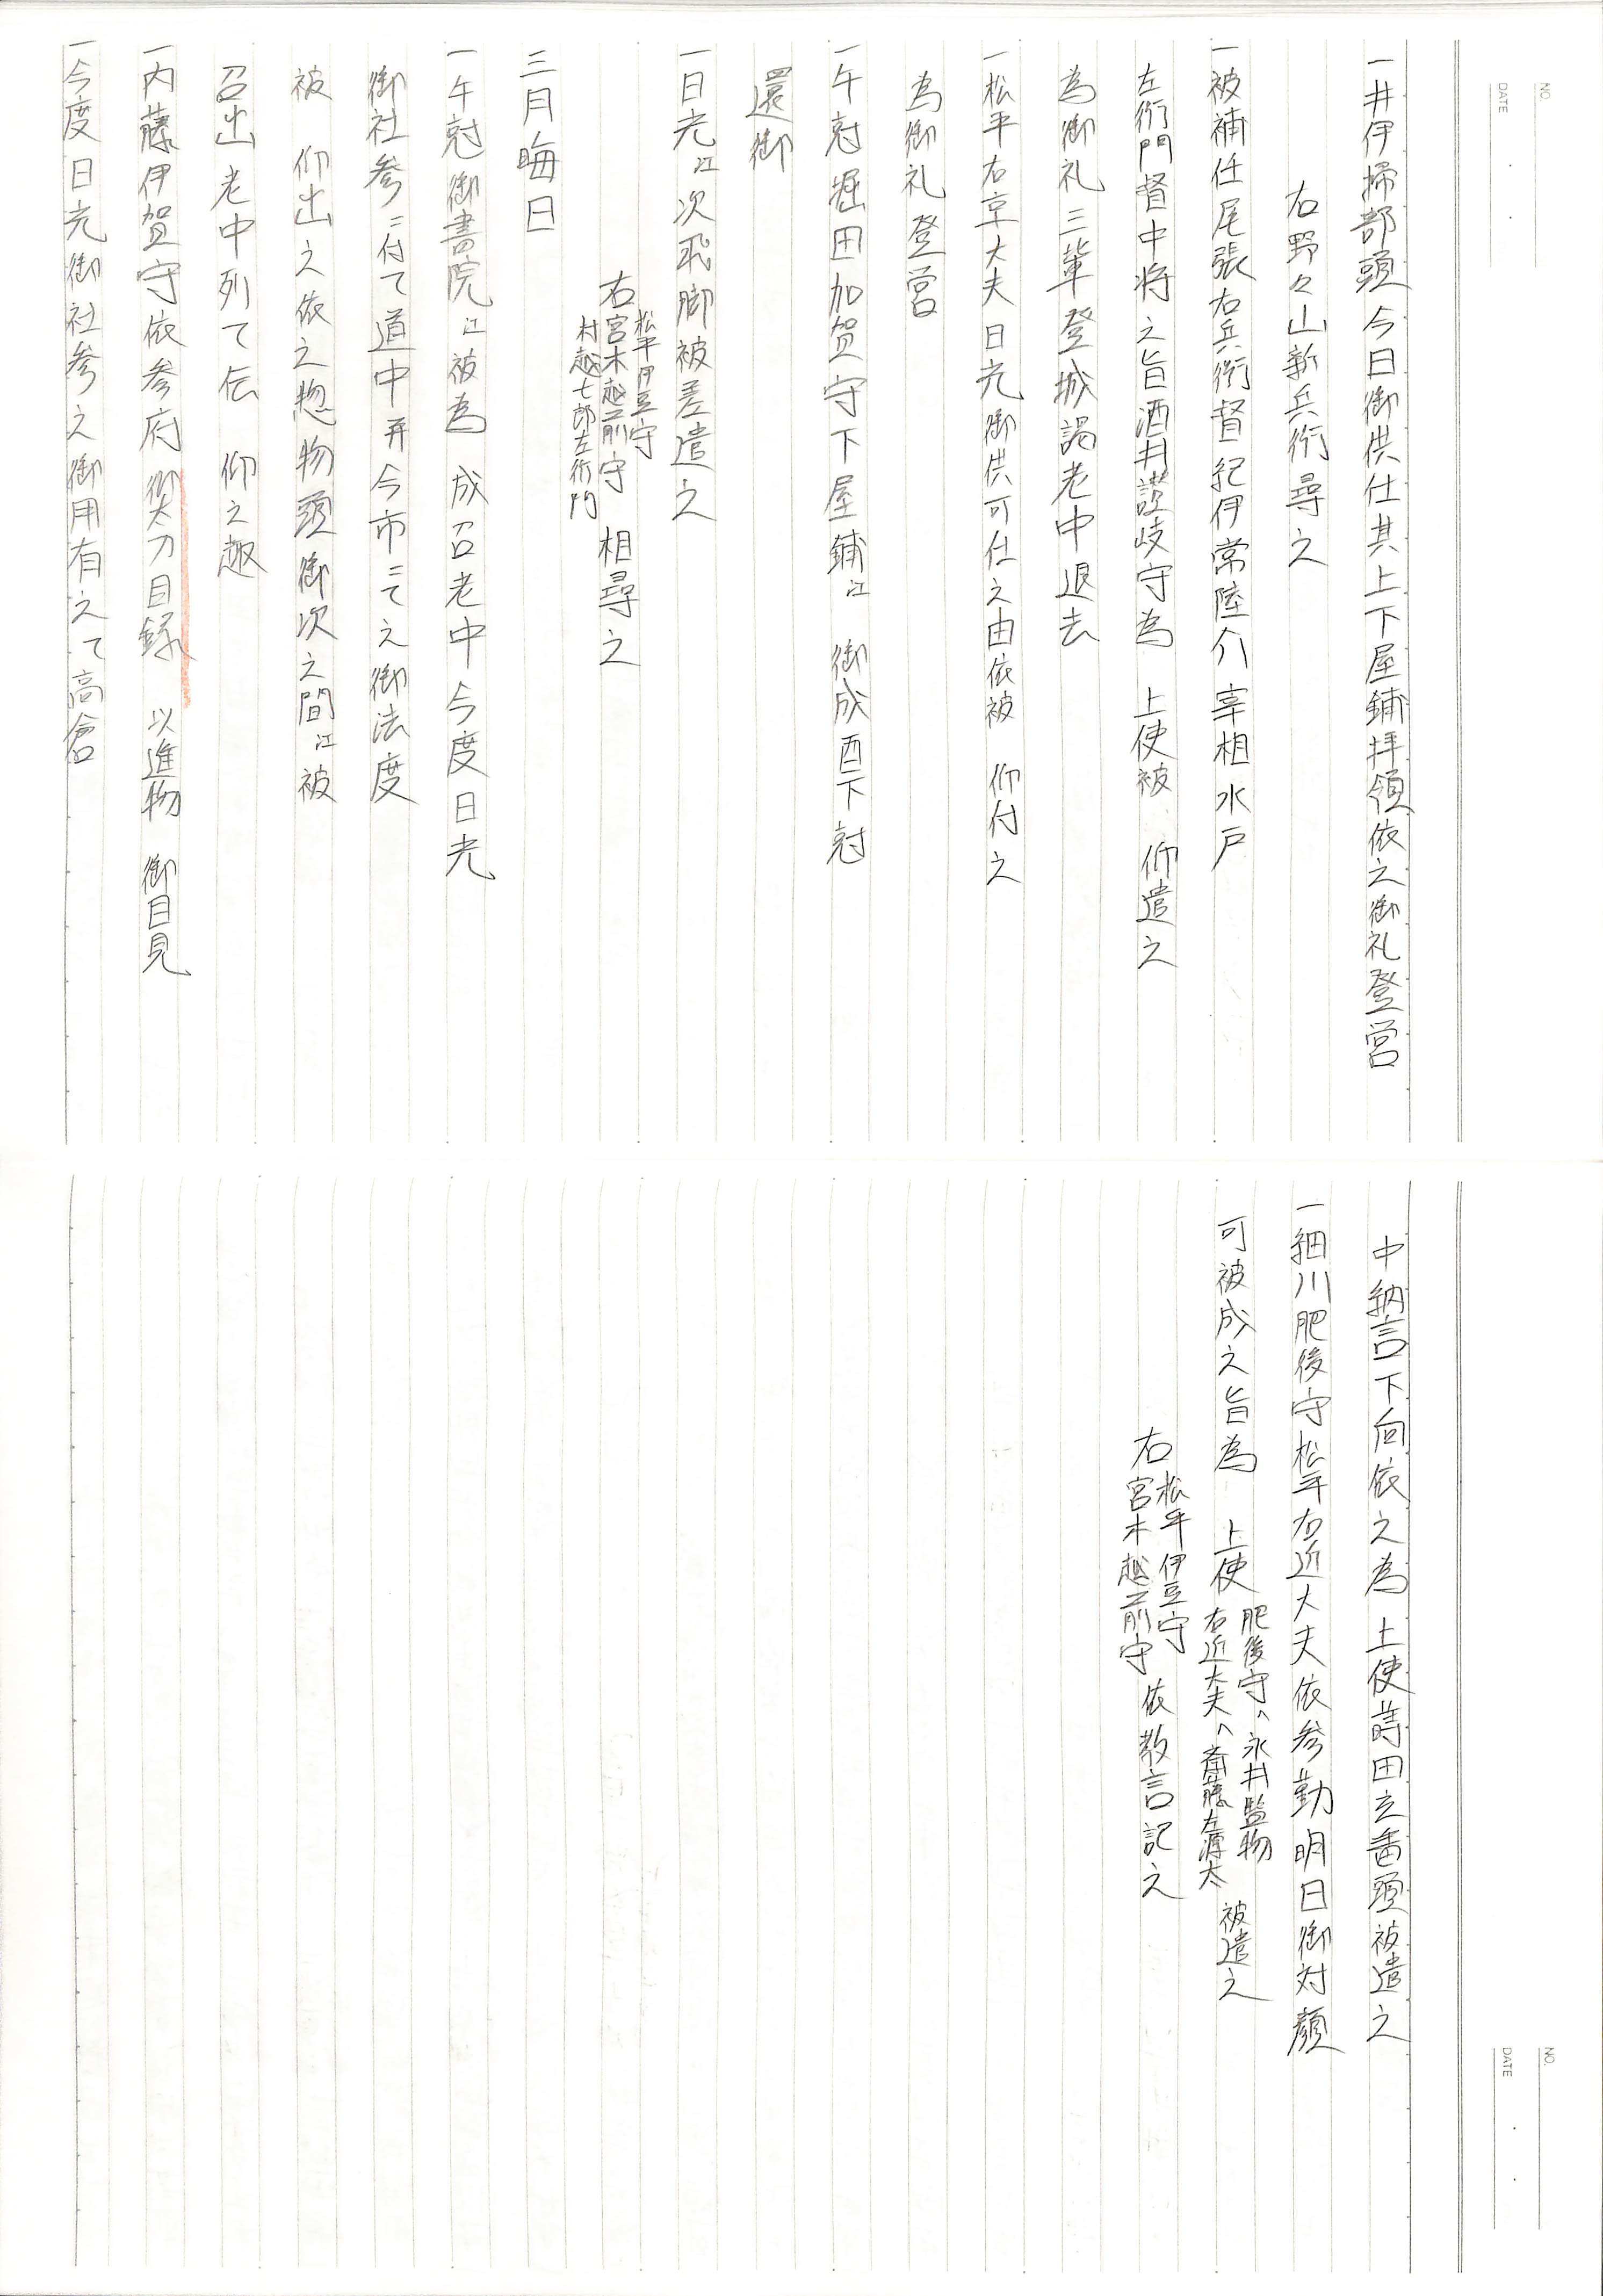 NO.
DATE
一井伊掃部頭今日御供仕其上下屋鋪拝領依之御礼登営
右野々山新兵衛尋之
一被補任尾張右兵衛督紀伊常陸介宰相水戸
左衛門督中将之旨酒井讃岐守為　上使被　仰遣之
為御礼三輩登城謁老中退去
一松平右京大夫日光御供可仕之由依被　仰付之
為御礼登営
一午刻堀田加賀守下屋鋪江　御成酉下刻
還御
一日光江次飛脚被差遣之
松平伊豆守
右宮木越前守　相尋之
村越七郎左衛門
三月晦日
一午刻御書院江被為　成召老中今度日光
御社参ニ付て道中并今市ニてえ御法度
被　仰出之依之惣物頭御次之間江被
召出老中列て伝　仰之趣
一内藤伊賀守依参府御太刀目録　以進物　御目見
一今度日光御社参之御用有之て高倉
NO.
DATE
中納言下向依之為　上使蒔田玄蕃頭被遣之
一細川肥後守松平右近大夫依参勤明日御対顔
可被成之旨為　上使　肥後守へ永井監物
右近大夫へ斎藤左源太　被遣之
松平伊豆守
右宮木越前守　依教言記之